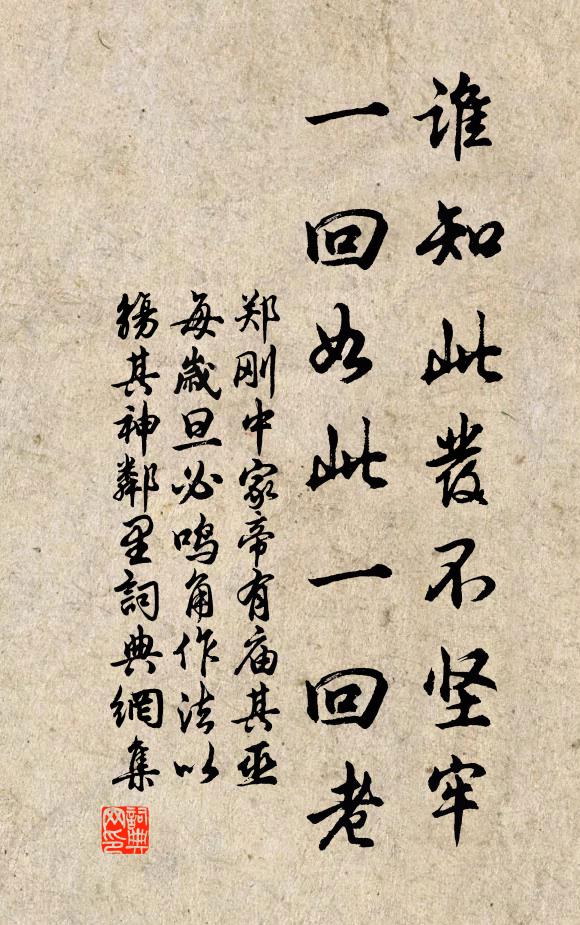 谁知此發不坚牢
一回如此一回老
郑刚中家帝有庙其巫
每歲旦必鸣角作法以
殇其神鄰里詞典網集
詞典
网印